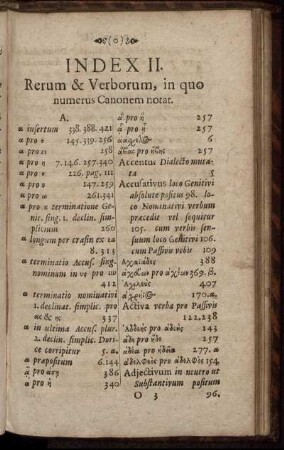 (o)
INDEX II.
Rerum & Verborum, in quo
numerus Canonem notat.
A.
α insertum 398. 388. 421
α pro ε 145. 339. 256
α pro ει 258
α pro η 7. 146. 257. 340
α pro ο 226. pag. 111
α pro ο 147. 259
α pro ω 261. 341
α pro ο terminatione Ge-
nit. sing. 1. declin. sim-
plicium 260
α longum per crasin ex εα
8. 313
α terminatio Accus. sing.
nominum in υς pro υν
412
α terminatio nominativi
1. declinat. simplic. pro
ας & ης 337
α in ultima Accus. plur.
2. declin. simplic. Dori-
ce corripitur 5. α.
α præpositum 6. 144
ᾳ pro 386
ᾳ pro ῃ 340
ᾳ pro ῃ 257
ᾳ pro ῃ 257
6
pro 257
Accentus Dialecto muta-
ta 5
Accusativus loco Genitivi
absolute positus 98. lo-
co Nominativi verbum
præcedit vel sequitur
105. cum verbis sen-
suum loco Genitivi 106.
cum Passivis verbis 109
388
pro 369. β.
407
170. α.
Activa verba pro Passivis
122. 238
pro 143
pro 257
pro 277. α
pro 154
Adjectivum in neutro ut
Substantivum positum
O 3 96.